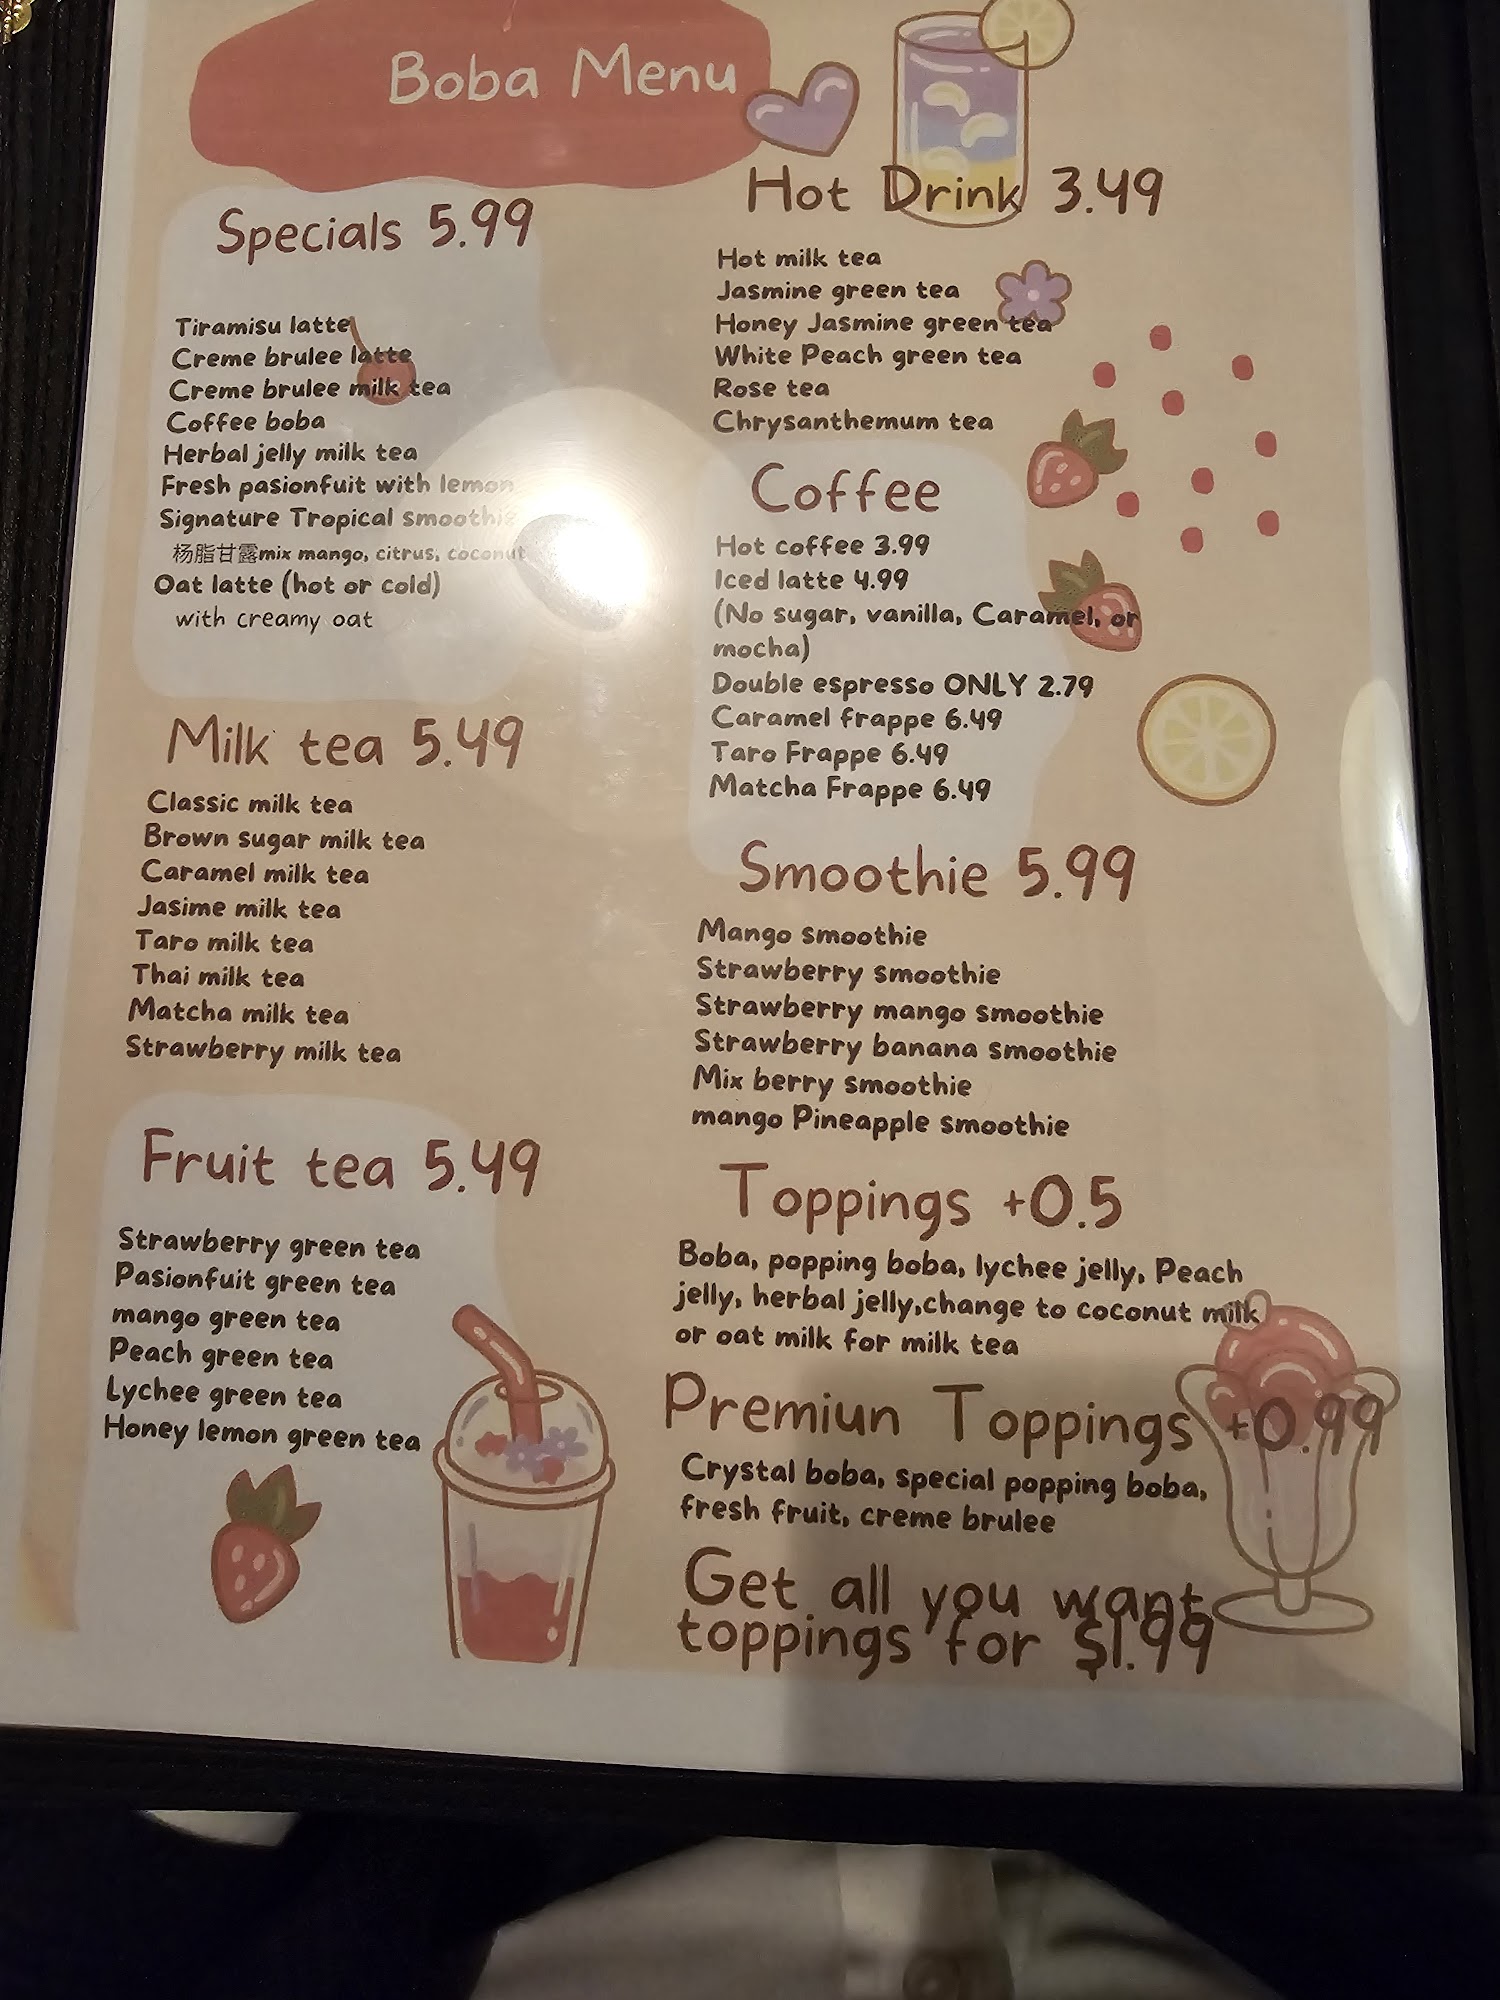 Boba Menu
Specials 5.99
Tiramisu latte
Creme brulee latte
Creme brulee milk tea
Coffee boba
Herbal jelly milk tea
Fresh pasionfuit with lemon
Signature Tropical smoothie
杨脂甘露mix mango, citrus, coconut
Oat latte (hot or cold)
with creamy oat
Milk tea 5.49
Classic milk tea
Brown sugar milk tea
Caramel milk tea
Jasime milk tea
Taro milk tea
Thai milk tea
Matcha milk tea
Strawberry milk tea
Fruit tea 5.49
Strawberry green tea
Pasionfuit green tea
mango green tea
Peach green tea
Lychee green tea
Honey lemon green tea
Hot Drink 3.49
Hot milk tea
Jasmine green tea
Honey Jasmine green tea
White Peach green tea
Rose tea
Chrysanthemum tea
Coffee
Hot coffee 3.99
Iced latte 4.99
(No sugar, vanilla, Caramel, or
mocha)
Double espresso ONLY 2.79
Caramel frappe 6.49
Taro Frappe 6.49
Matcha Frappe 6.49
Smoothie 5.99
Mango smoothie
Strawberry smoothie
Strawberry mango smoothie
Strawberry banana smoothie
Mix berry smoothie
mango Pineapple smoothie
Toppings +0.5
Boba, popping boba, lychee jelly, Peach
jelly, herbal jelly,change to coconut milk
or oat milk for milk tea
Premiun Toppings +0.99
Crystal boba, special popping boba,
fresh fruit, creme brulee
Get all you want
toppings for $1.99